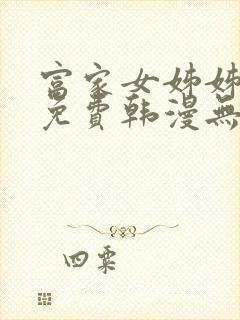 富家女姊姊
免費韩漫無
四粟